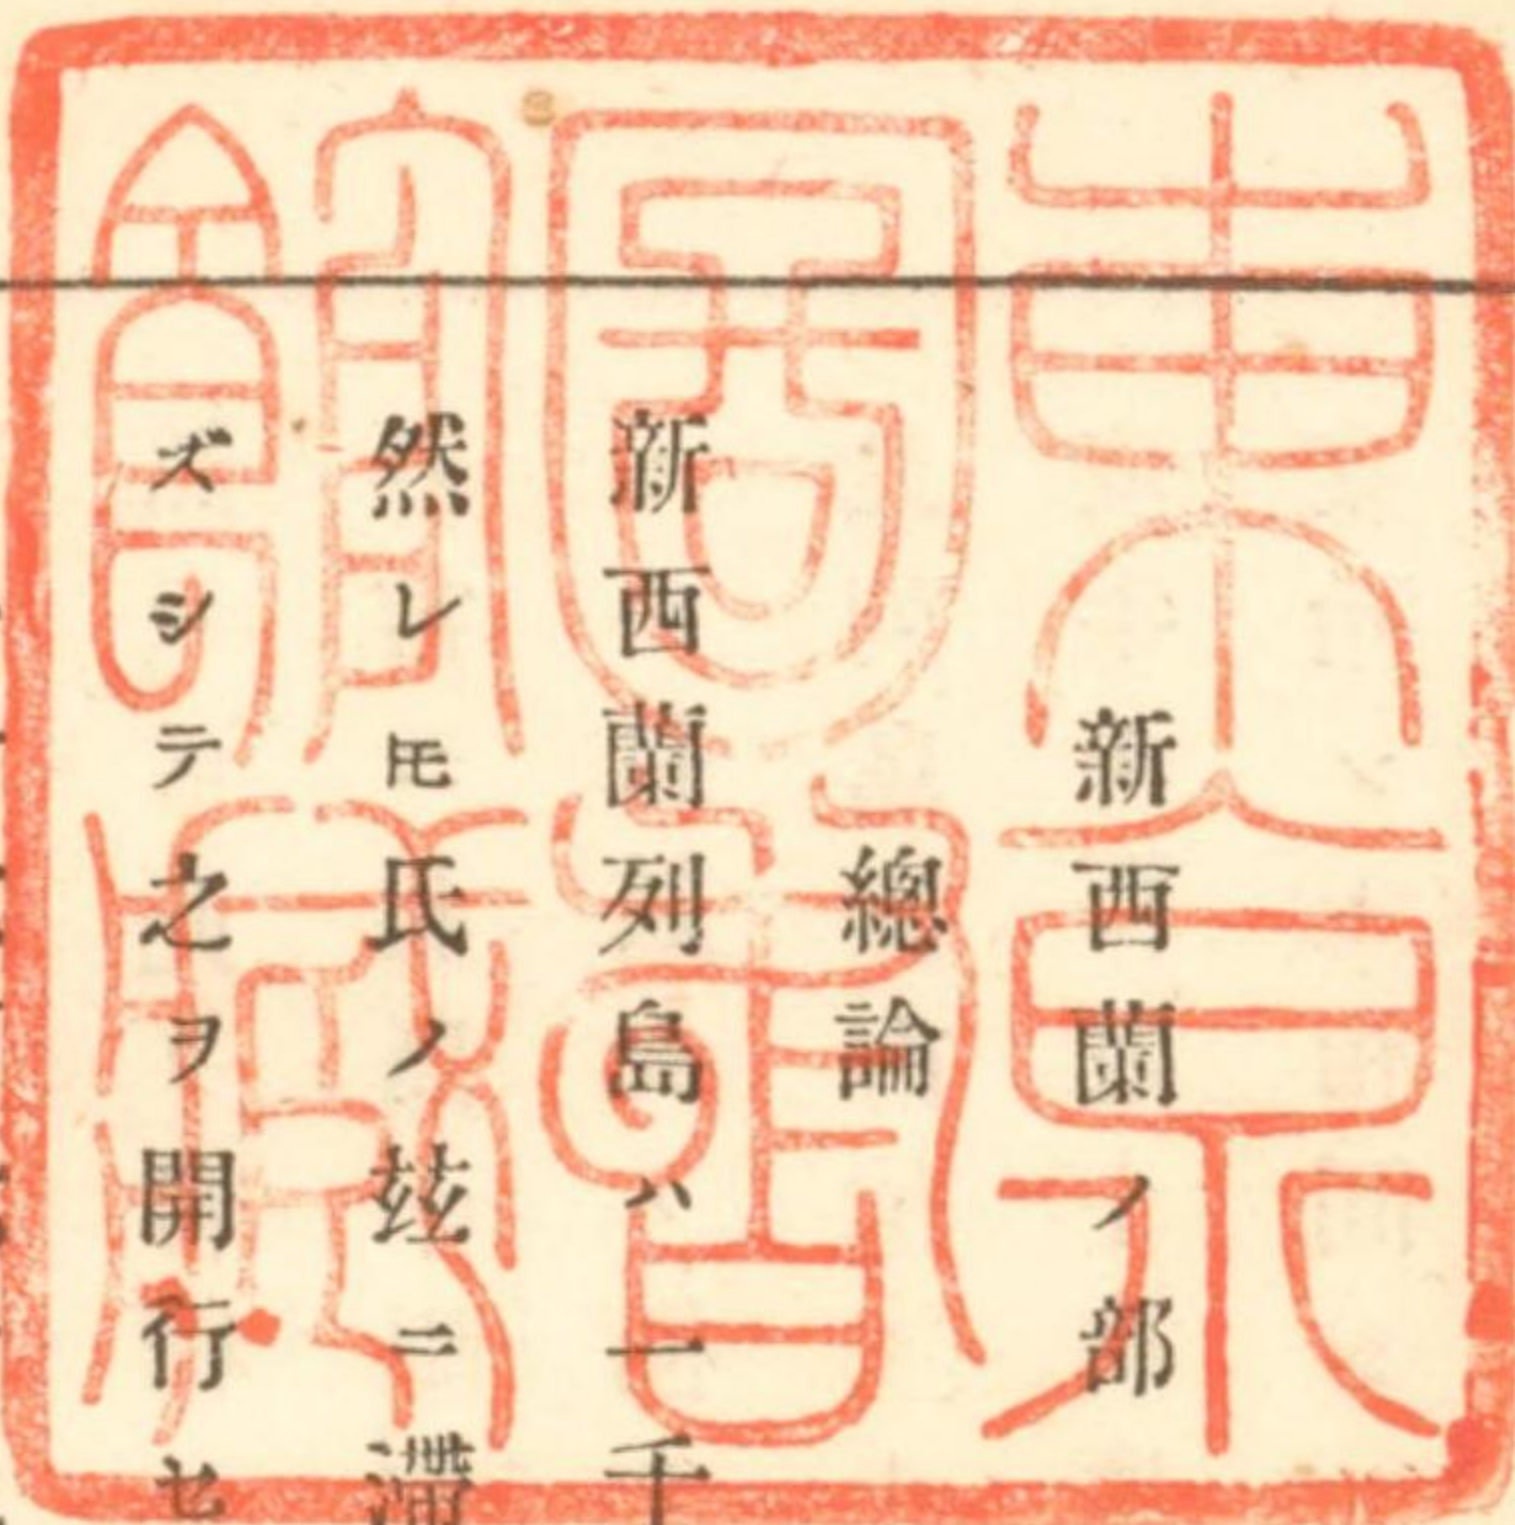 東京圖書館藏
新西蘭ノ部
總論
新西蘭列島ハ一千
然レ𪜈氏ノ玆ニ滯
ズシテ之ヲ開行セ